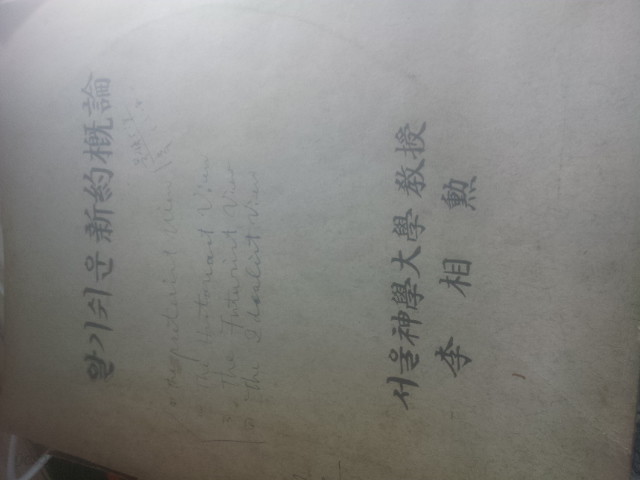 알기쉬운 新約概論
The preterist View
The Historicist View
The Futurist View
The Idealist View
서울神學大學 敎授
李 相 勲